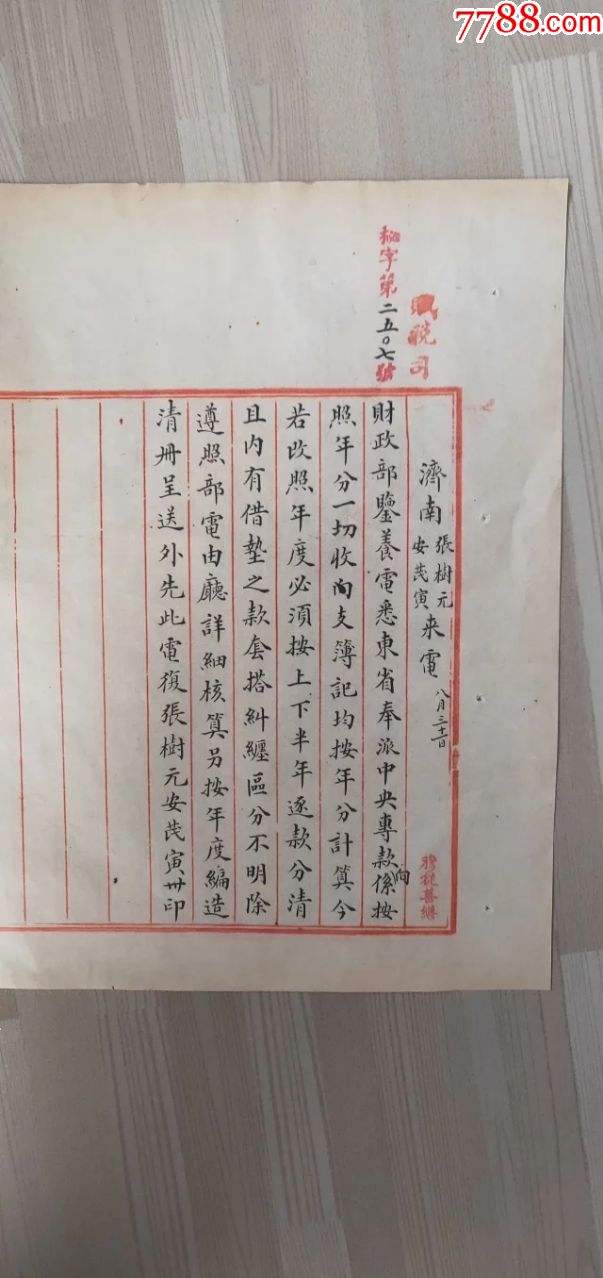 7788.com
賦税司
秘字第二五〇七號
濟南張樹元安茂寅来電八月三十一日
財政部鑒養電悉東省奉派中央專款係向按
照年分一切收支簿記均按年分計算今
若改照年度必須按上下半年逐款分清
且内有借墊之款套搭糾纏區分不明除
遵照部電由廳詳細核算另按年度編造
清册呈送外先此電復張樹元安茂寅卅印